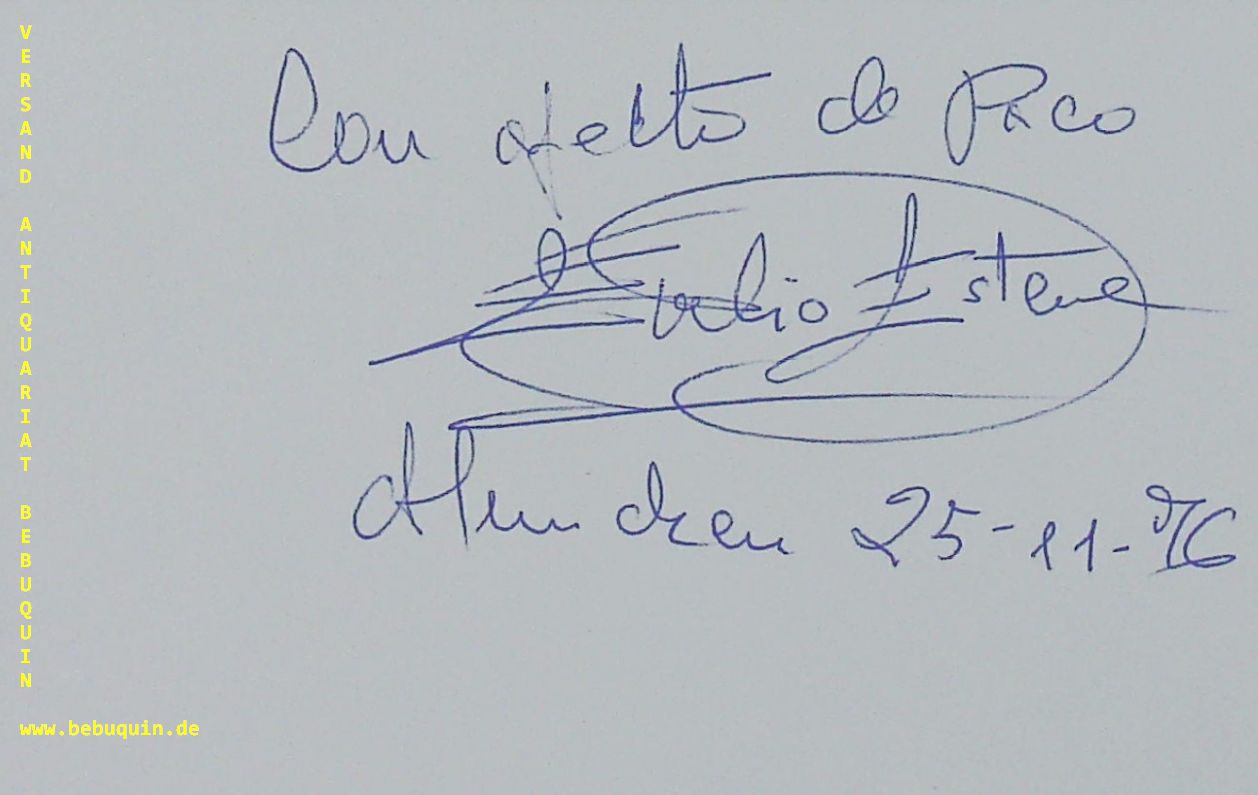 Con afecto de Paco
Emilio Esteve
München 25-11-76
VERSAND ANTIQUARIAT BEBUQUIN
www.bebuquin.de